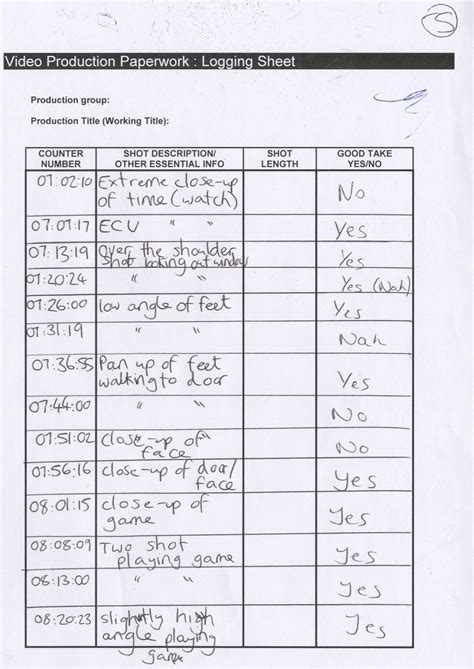 5
Video Production Paperwork : Logging Sheet
Production group:
Production Title (Working Title):
COUNTER NUMBER SHOT DESCRIPTION/ OTHER ESSENTIAL INFO SHOT LENGTH GOOD TAKE YES/NO
07:02:10 Extreme close-up of time (watch) No
07:07:17 ECU " " Yes
07:13:19 Over the shoulder shot looking out window Yes
07:20:24 " " Yes (Nah)
07:26:00 low angle of feet Yes
07:31:19 " " Nah
07:36:55 Pan up of feet walking to door Yes
07:44:00 " " No
07:51:02 close-up of face No
07:56:16 close-up of door/ face Yes
08:01:15 close-up of game Yes
08:08:09 Two shot playing game Yes
08:13:00 " " Yes
08:20:23 slightly high angle playing game Yes